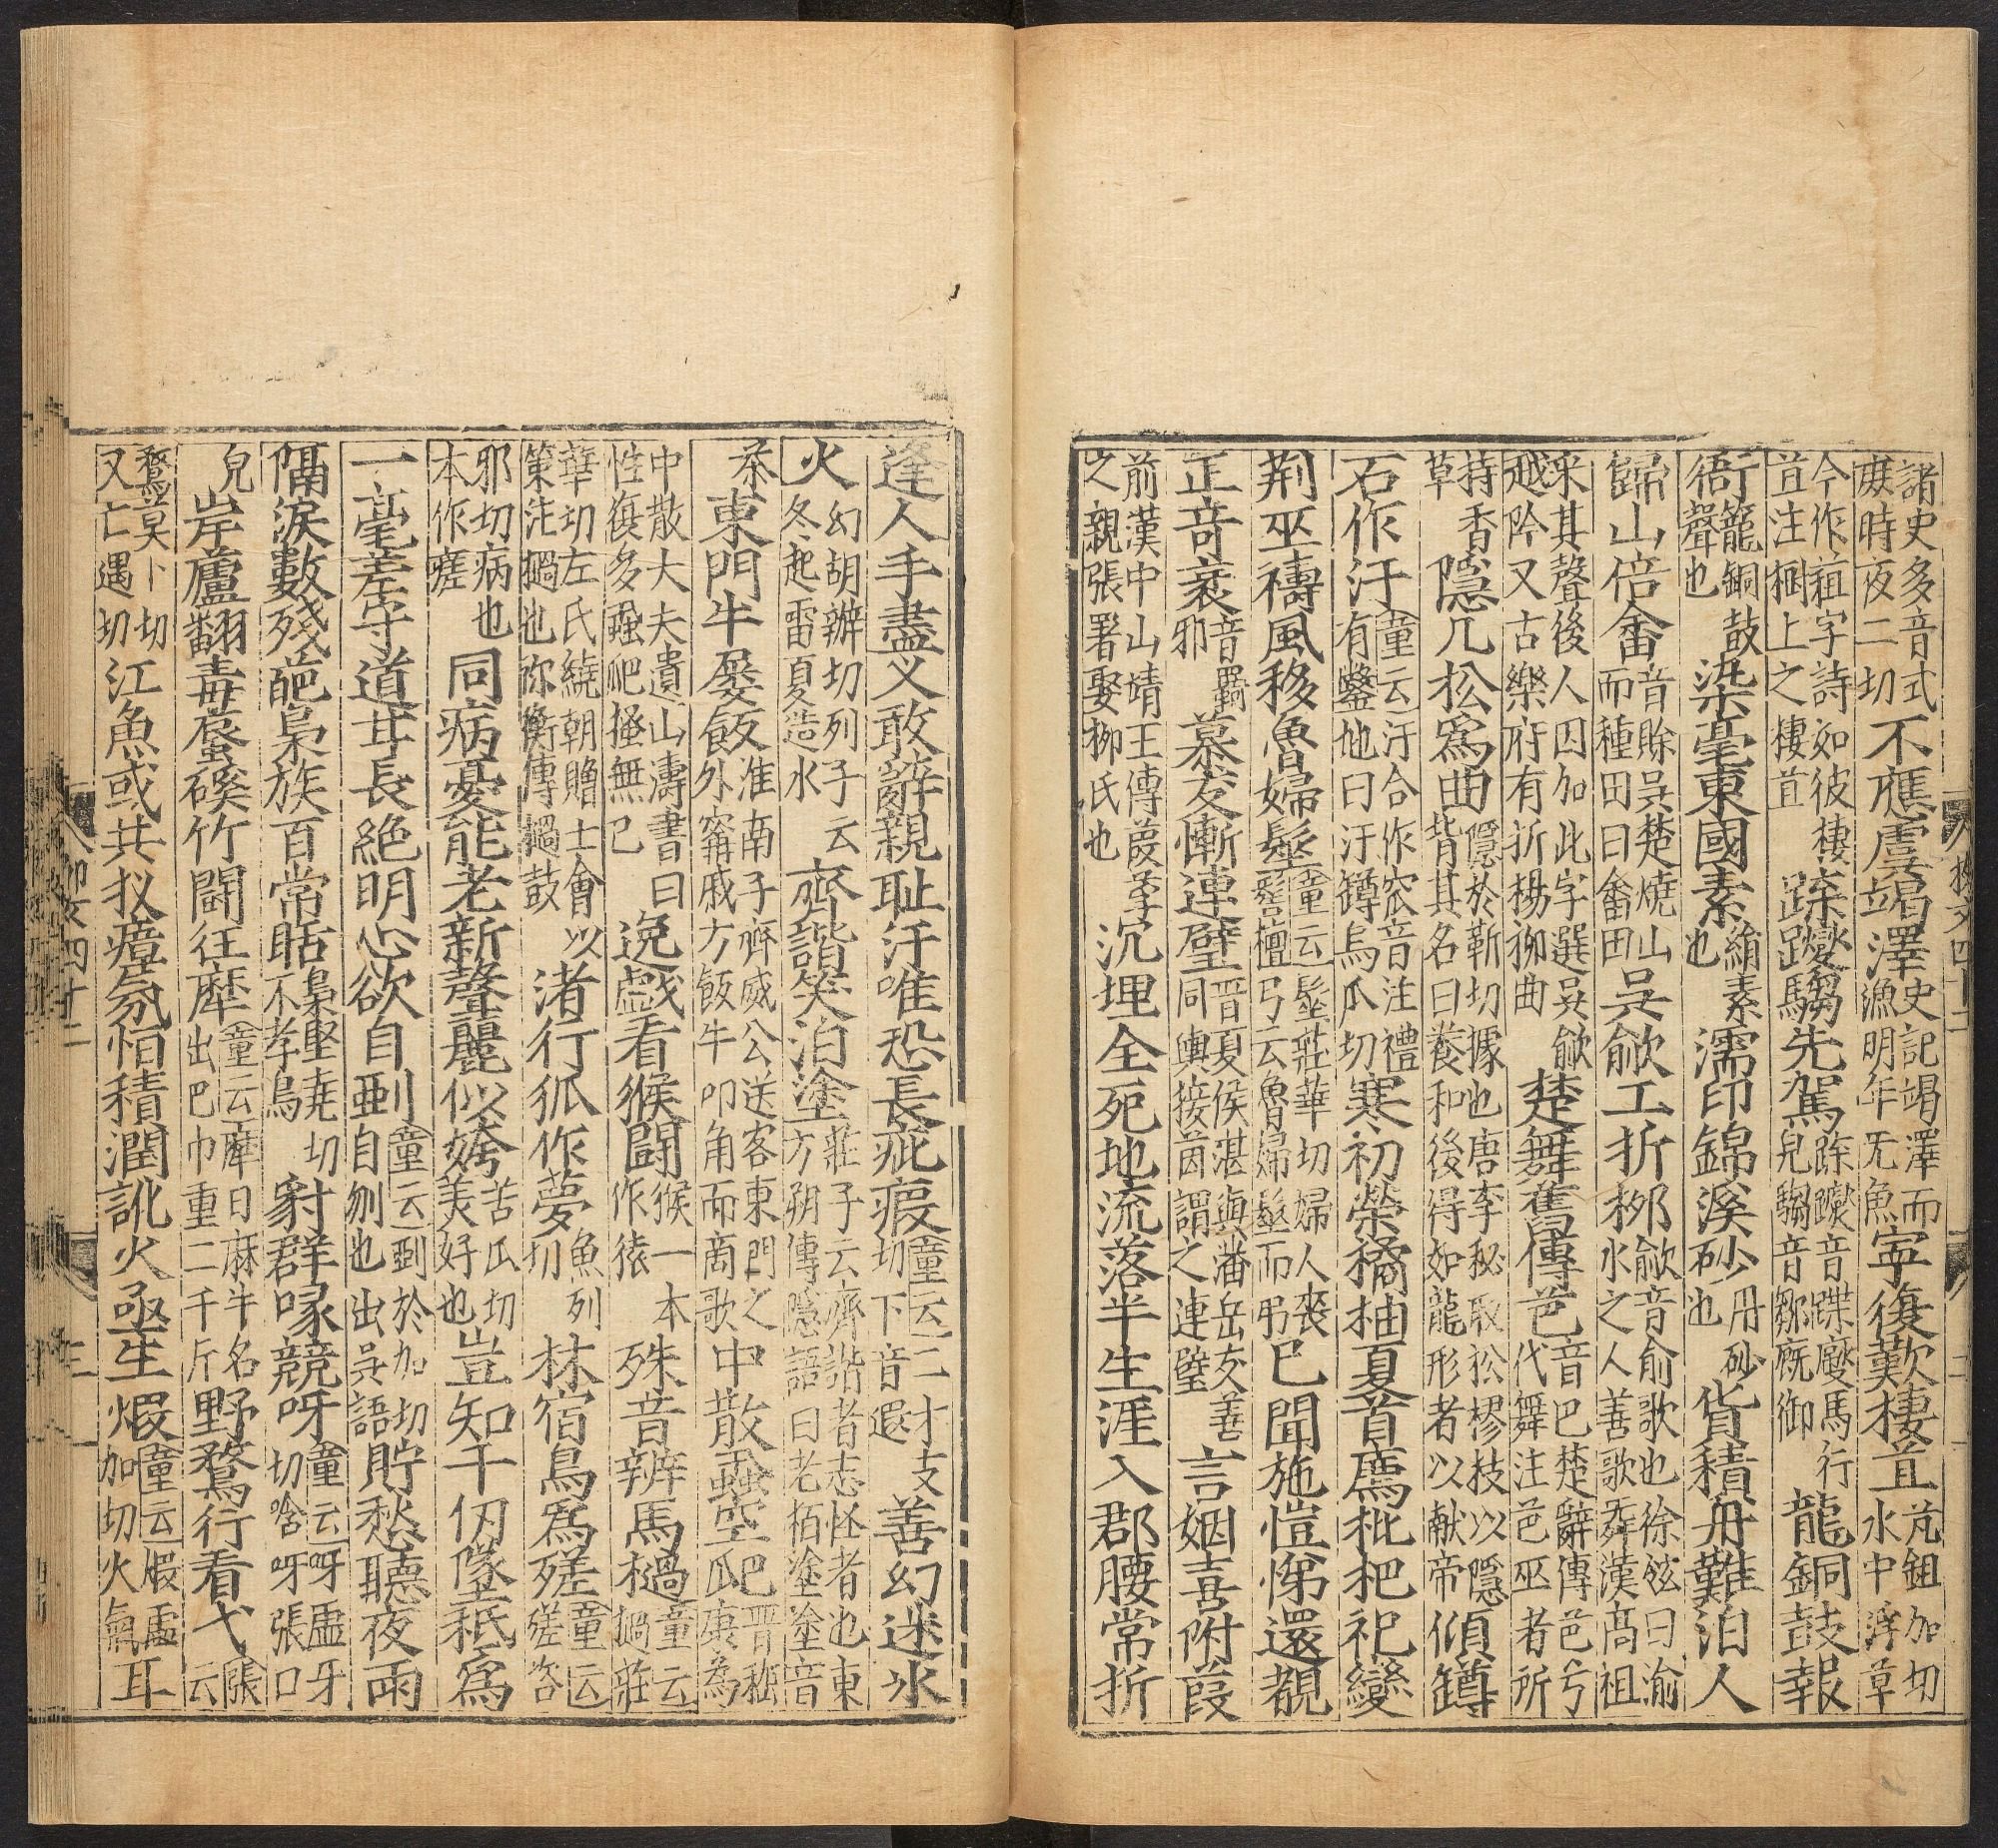 諸史多音式䗪時夜二切不應虞竭澤史記竭澤而漁明年无魚寧復歎棲苴鉏加切水中浮草
今作葅字詩如彼棲苴注棞上之棲苴跦躞騶先駕跦躞音蹀廀馬行皃騶音鄒廐御龍銅鼓報
衙籠銅鼓聲也染毫東國素絹素也濡印錦溪砂丹砂也貨積舟難泊人
歸山倍畬音賒吳楚燒山而種田曰畬田吳歈工折栁歈音俞歌也徐鉉曰渝水之人善歌舞漢髙祖
采其聲後人因加此字選吳歈越吟又古樂府有折楊栁曲楚舞舊傳芭音巴楚辭傳芭兮代舞注芭巫者所
持香草隱几松爲曲隱於靳切據也唐李秘取松樛枝以隱背其名曰養和後得如龍形者以献帝傾罇
石作汙童云汙合作窊音注禮有鑿地曰汙罇烏瓜切寒初榮橘柚夏首薦枇杷祀變
荆巫禱風移魯婦髽童云髽莊華切婦人喪髻檀弓云魯婦髽而弔已聞施愷悌還覩
正奇衺音羇邪慕友慚連璧晋夏侯湛與潘岳友善同輿接茵謂之連璧言姻喜附葭
前漢中山靖王傳葭莩之親張署娶栁氏也沉埋全死地流落半生涯入郡腰常折
柳文四十二
逢人手盡义敢辭親耻汙唯恐長疵瘕童云二才支切下音遐善幻迷氷
火幻胡辦切列子云冬起雷夏造水齊諧笑泊塗莊子云齊諧者志怪者也東方朔傳隱語曰老栢塗塗音
荼東門牛屡飯淮南子齊威公送客東門之外甯戚方飯牛叩角而商歌中散蝨空巴晋嵇瓜康為
中散大夫遺山濤書曰性復多蝨爬搔無已逸戲看猴鬪猴一本作猿殊音辨馬檛童云檛莊
華切左氏繞朝贈士會以策注檛也祢衡傳檛鼓渚行狐作孽魚列切林宿鳥爲㾨童云㾨咨
邪切病也本作瘥同病憂能老新聲麗似姱苦瓜切美好也豈知千仞墜秖爲
一毫差守道甘長絶明心欲自剄童云剄於加切自刎也出吳語貯愁聽夜雨
隔淚數殘葩梟族百常聒梟堅堯切不孝鳥豺群喙競呀童云呀虛牙切唅呀張口
皃岸蘆翻毒蜃磎竹鬪狂犘童云犘日麻牛名出巴巾重二千斤野鶩行看弋張云
鶩莫卜切又亡遇切江魚或共扠瘴氛恒積潤訛火亟生煆童云煆虛加切火氣耳
栁文四十二
三